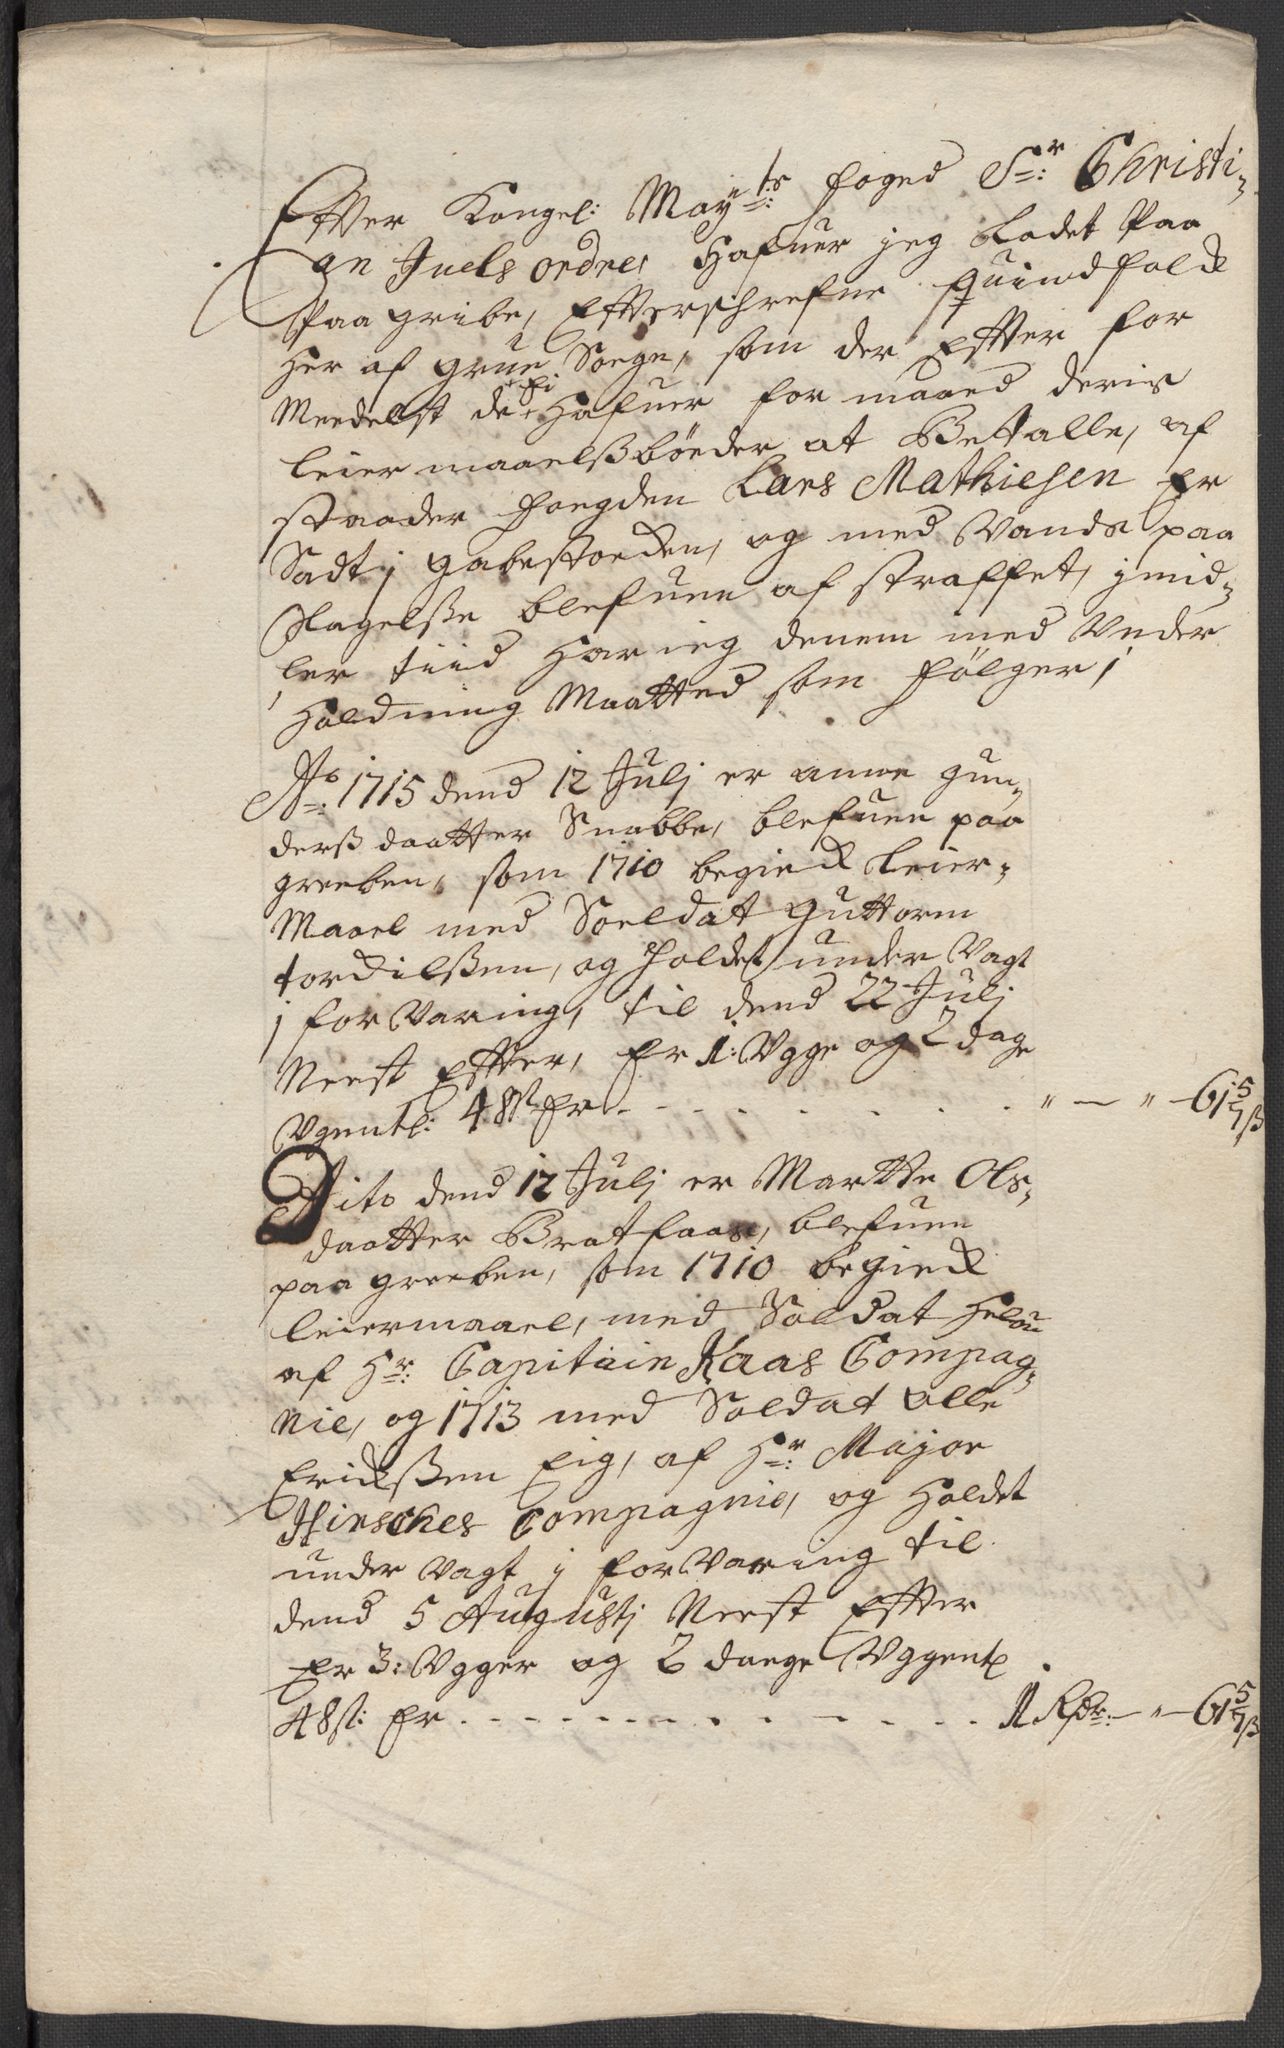 Efter Kongel: May:ts foged Sr: Christi-
an Juels ordre, Hafuer jeg Ladet Paa
Paa gribe, Effterschrefne quindfolck
her af grue Sogn, som der Effter for
Meedelst de ei Hafuer formaaed deris
leiermaaelsbøeder at Bettalle, af
staader foegden Lars Mathiesen Er
Sadt j gabestocken, og med Vands paa
Slagelsse blefuen afstraffet, jmid-
ler tiid Har ieg denem med Vnder
holdning Maatted som følger,
Ao: 1715 dend 12 Julj er anne gun-
derss daatter Snabbe, blefuen paa
greeben, som 1710 begick leier-
Maael med Soeldat guttorm
torckilssen, og holdet under Vagt
j forVaring, til dend 22 Julj
Neest Effter, Er 1: Vgge og 2 dage
Vgentl: 48 s Er - - - " — " — 61 5/7 ß
Dito dend 12 Julj er Martte Ols-
daatter Bratfaas, blefuen
paa greeben, som 1710 begick
leiermaael, med Soldat
af Hr: Capitain Kaas Compag-
nie, og 1713 med Soldat olle
Erickssen Eig, af Hr: Major
Hirsches Compagnie, og holdet
under Vagt j forVaring til
dend 5 Augustj Neest Effter
Er 3: Vgger og 2 daege Vggentl
48 s: Er - - - 1 Rdr: — " — 61 5/7 ß